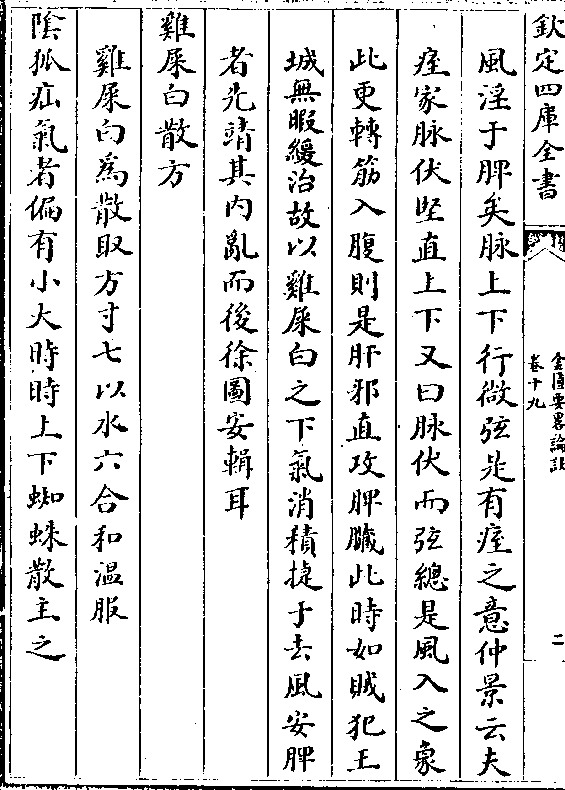 欽定四庫全書
金匱要畧論註
卷十九
二
風淫于脾矣脉上下行微弦是有痓之意仲景云夫
痓家脉伏堅直上下又曰脉伏而弦總是風入之象
此更轉筋入腹則是肝邪直攻脾臟此時如賊犯王
城無暇緩治故以雞屎白之下氣消積捷于去風安脾
者先靖其内亂而後徐圖安輯耳
雞屎白散方
雞屎白為散取方寸七以水六合和溫服
陰狐疝氣者偏有小大時時上下蜘蛛散主之